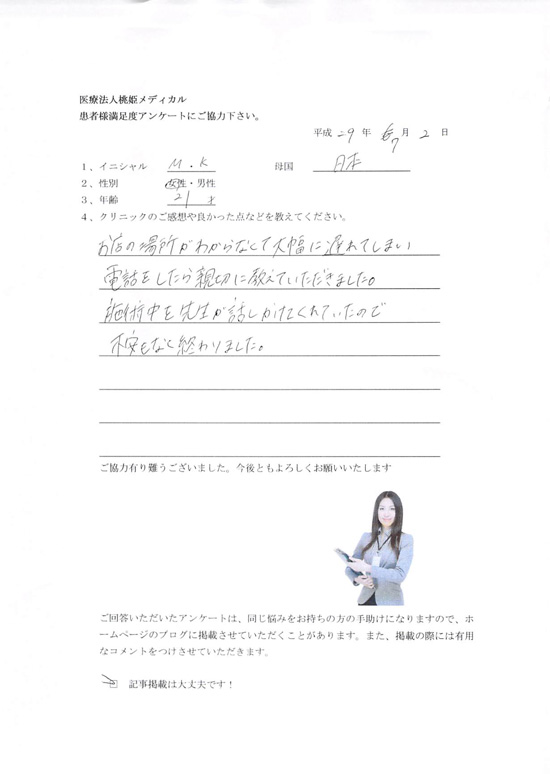 医療法人桃姫メディカル
患者様満足度アンケートにご協力下さい。
平成 29 年 7 月 2 日
1、イニシャル M.K 母国 日本
2、性別 女性・男性
3、年齢 21 才
4、クリニックのご感想や良かった点などを教えてください。
お店の場所がわからなくて大幅に遅れてしまい
電話をしたら親切に教えていただきました。
施術中も先生が話しかけてくれていたので
不安もなく終わりました。
ご協力有り難うございました。今後ともよろしくお願いいたします
ご回答いただいたアンケートは、同じ悩みをお持ちの方の手助けになりますので、ホ
ームページのブログに掲載させていただくことがあります。また、掲載の際には有用
なコメントをつけさせていただきます。
記事掲載は大丈夫です！